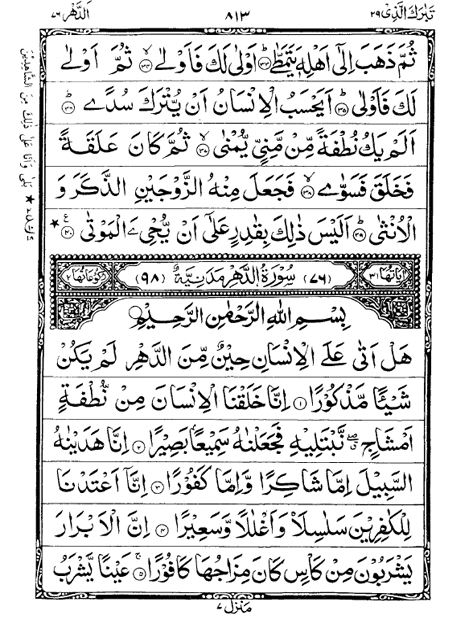 تَبٰرَكَ الَّذِیْ ۲۹
۸۱۳
اَلدَّهْر ۷۶
ثُمَّ ذَهَبَ اِلٰۤى اَهْلِهٖ یَتَمَطّٰىؕ۳۳ اَوْلٰى لَكَ فَاَوْلٰىۙ۳۴ ثُمَّ اَوْلٰى
لَكَ فَاَوْلٰىؕ۳۵ اَیَحْسَبُ الْاِنْسَانُ اَنْ یُّتْرَكَ سُدًىؕ۳۶
اَلَمْ یَكُ نُطْفَةً مِّنْ مَّنِیٍّ یُّمْنٰىۙ۳۷ ثُمَّ كَانَ عَلَقَةً
فَخَلَقَ فَسَوّٰىۙ۳۸ فَجَعَلَ مِنْهُ الزَّوْجَیْنِ الذَّكَرَ وَ
الْاُنْثٰىؕ۳۹ اَلَیْسَ ذٰلِكَ بِقٰدِرٍ عَلٰۤى اَنْ یُّحْیِۦَ الْمَوْتٰى۠۴۰ ★
اٰیَاتُهَا ۳۱ (۷۶) سُوْرَةُ الدَّهْرِ مَدَنِیَّةٌ (۹۸) رُكُوْعَاتُهَا ۲
بِسْمِ اللّٰهِ الرَّحْمٰنِ الرَّحِیْمِ
هَلْ اَتٰى عَلَى الْاِنْسَانِ حِیْنٌ مِّنَ الدَّهْرِ لَمْ یَكُنْ
شَیْـًٔا مَّذْكُوْرًا۱ اِنَّا خَلَقْنَا الْاِنْسَانَ مِنْ نُّطْفَةٍ
اَمْشَاجٍ ۖۗ نَّبْتَلِیْهِ فَجَعَلْنٰهُ سَمِیْعًۢا بَصِیْرًا۲ اِنَّا هَدَیْنٰهُ
السَّبِیْلَ اِمَّا شَاكِرًا وَّاِمَّا كَفُوْرًا۳ اِنَّاۤ اَعْتَدْنَا
لِلْكٰفِرِیْنَ سَلٰسِلَا۠ وَاَغْلٰلًا وَّسَعِیْرًا۴ اِنَّ الْاَبْرَارَ
یَشْرَبُوْنَ مِنْ كَاْسٍ كَانَ مِزَاجُهَا كَافُوْرًاۚ۵ عَیْنًا یَّشْرَبُ
منزل ۷
بَلٰى وَاَنَا عَلٰى ذٰلِكَ مِنَ الشّٰهِدِیْنَ ★